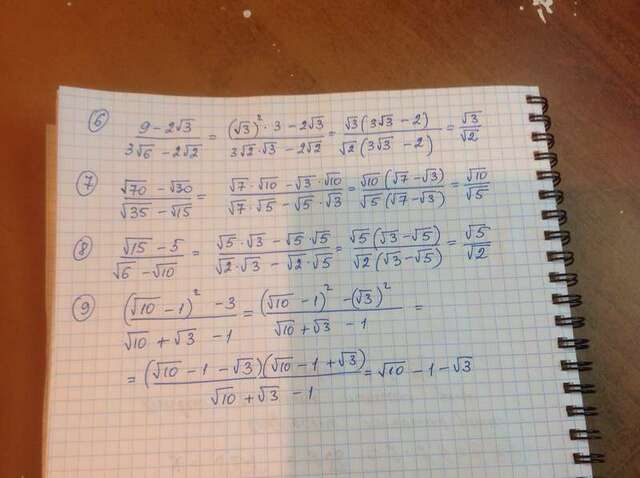 6 (9 - 2√3)/(3√6 - 2√2) = ((√3)² · 3 - 2√3)/(3√2 · √3 - 2√2) = (√3(3√3 - 2))/(√2(3√3 - 2)) = √3/√2
7 (√70 - √30)/(√35 - √15) = (√7 · √10 - √3 · √10)/(√7 · √5 - √5 · √3) = (√10(√7 - √3))/(√5(√7 - √3)) = √10/√5
8 (√15 - 5)/(√6 - √10) = (√5 · √3 - √5 · √5)/(√2 · √3 - √2 · √5) = (√5(√3 - √5))/(√2(√3 - √5)) = √5/√2
9 ((√10 - 1)² - 3)/(√10 + √3 - 1) = ((√10 - 1)² - (√3)²)/(√10 + √3 - 1) =
= ((√10 - 1 - √3)(√10 - 1 + √3))/(√10 + √3 - 1) = √10 - 1 - √3